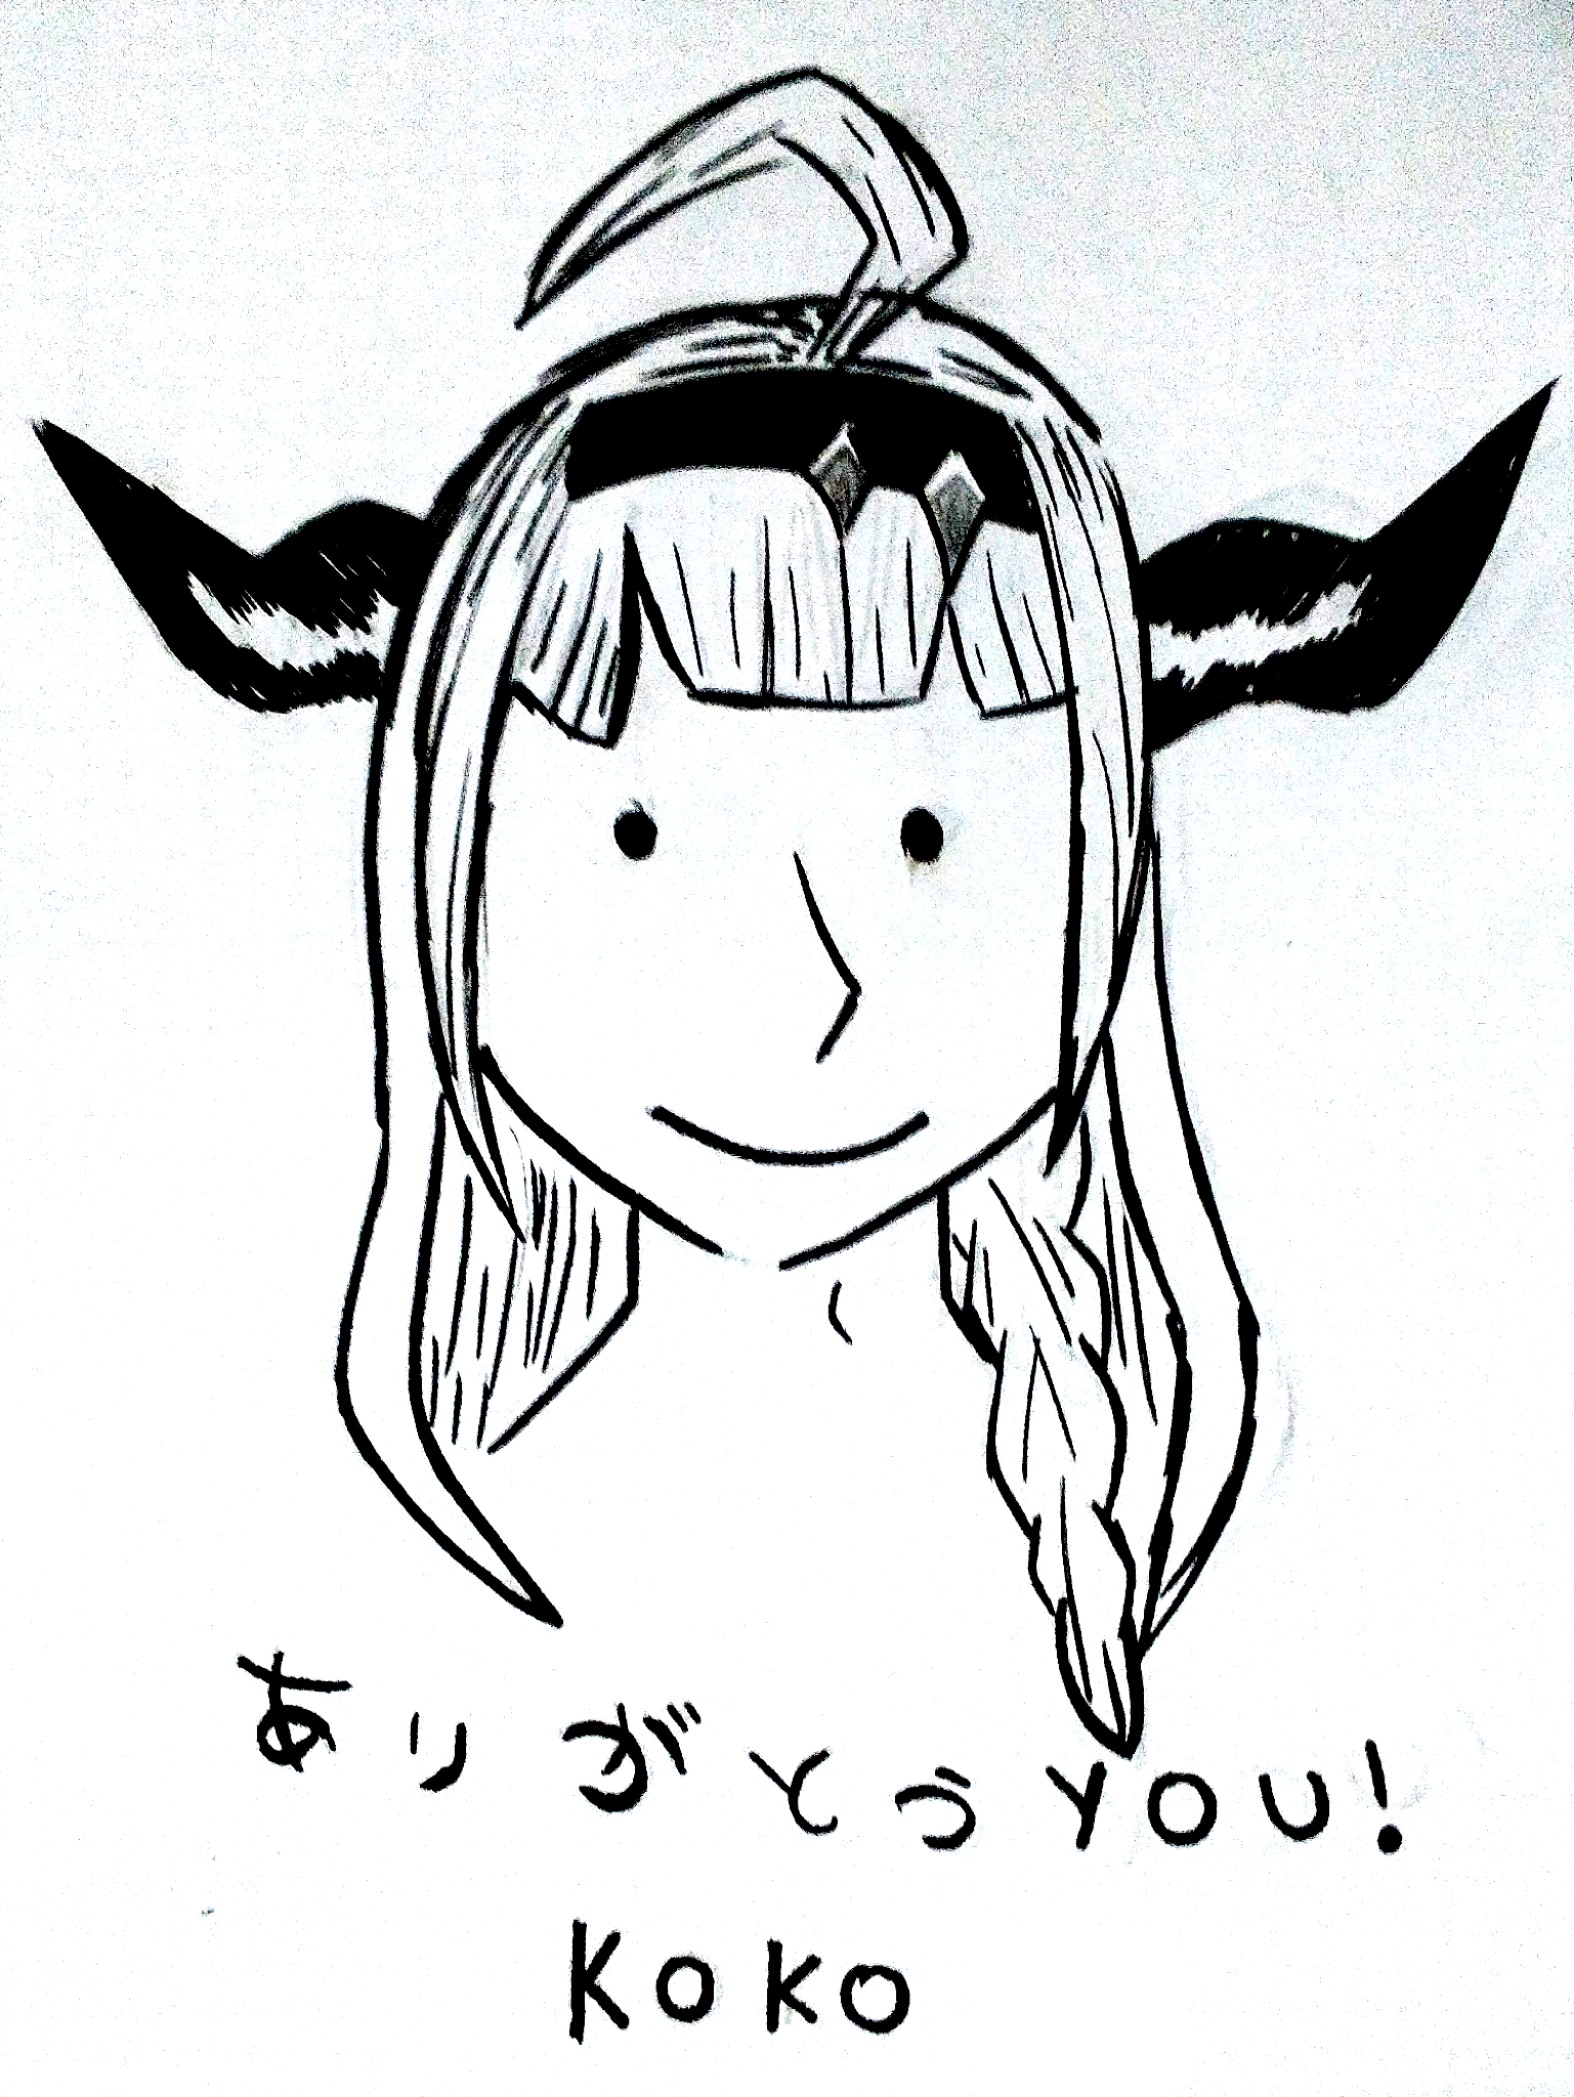 ありがとうYOU!
KOKO